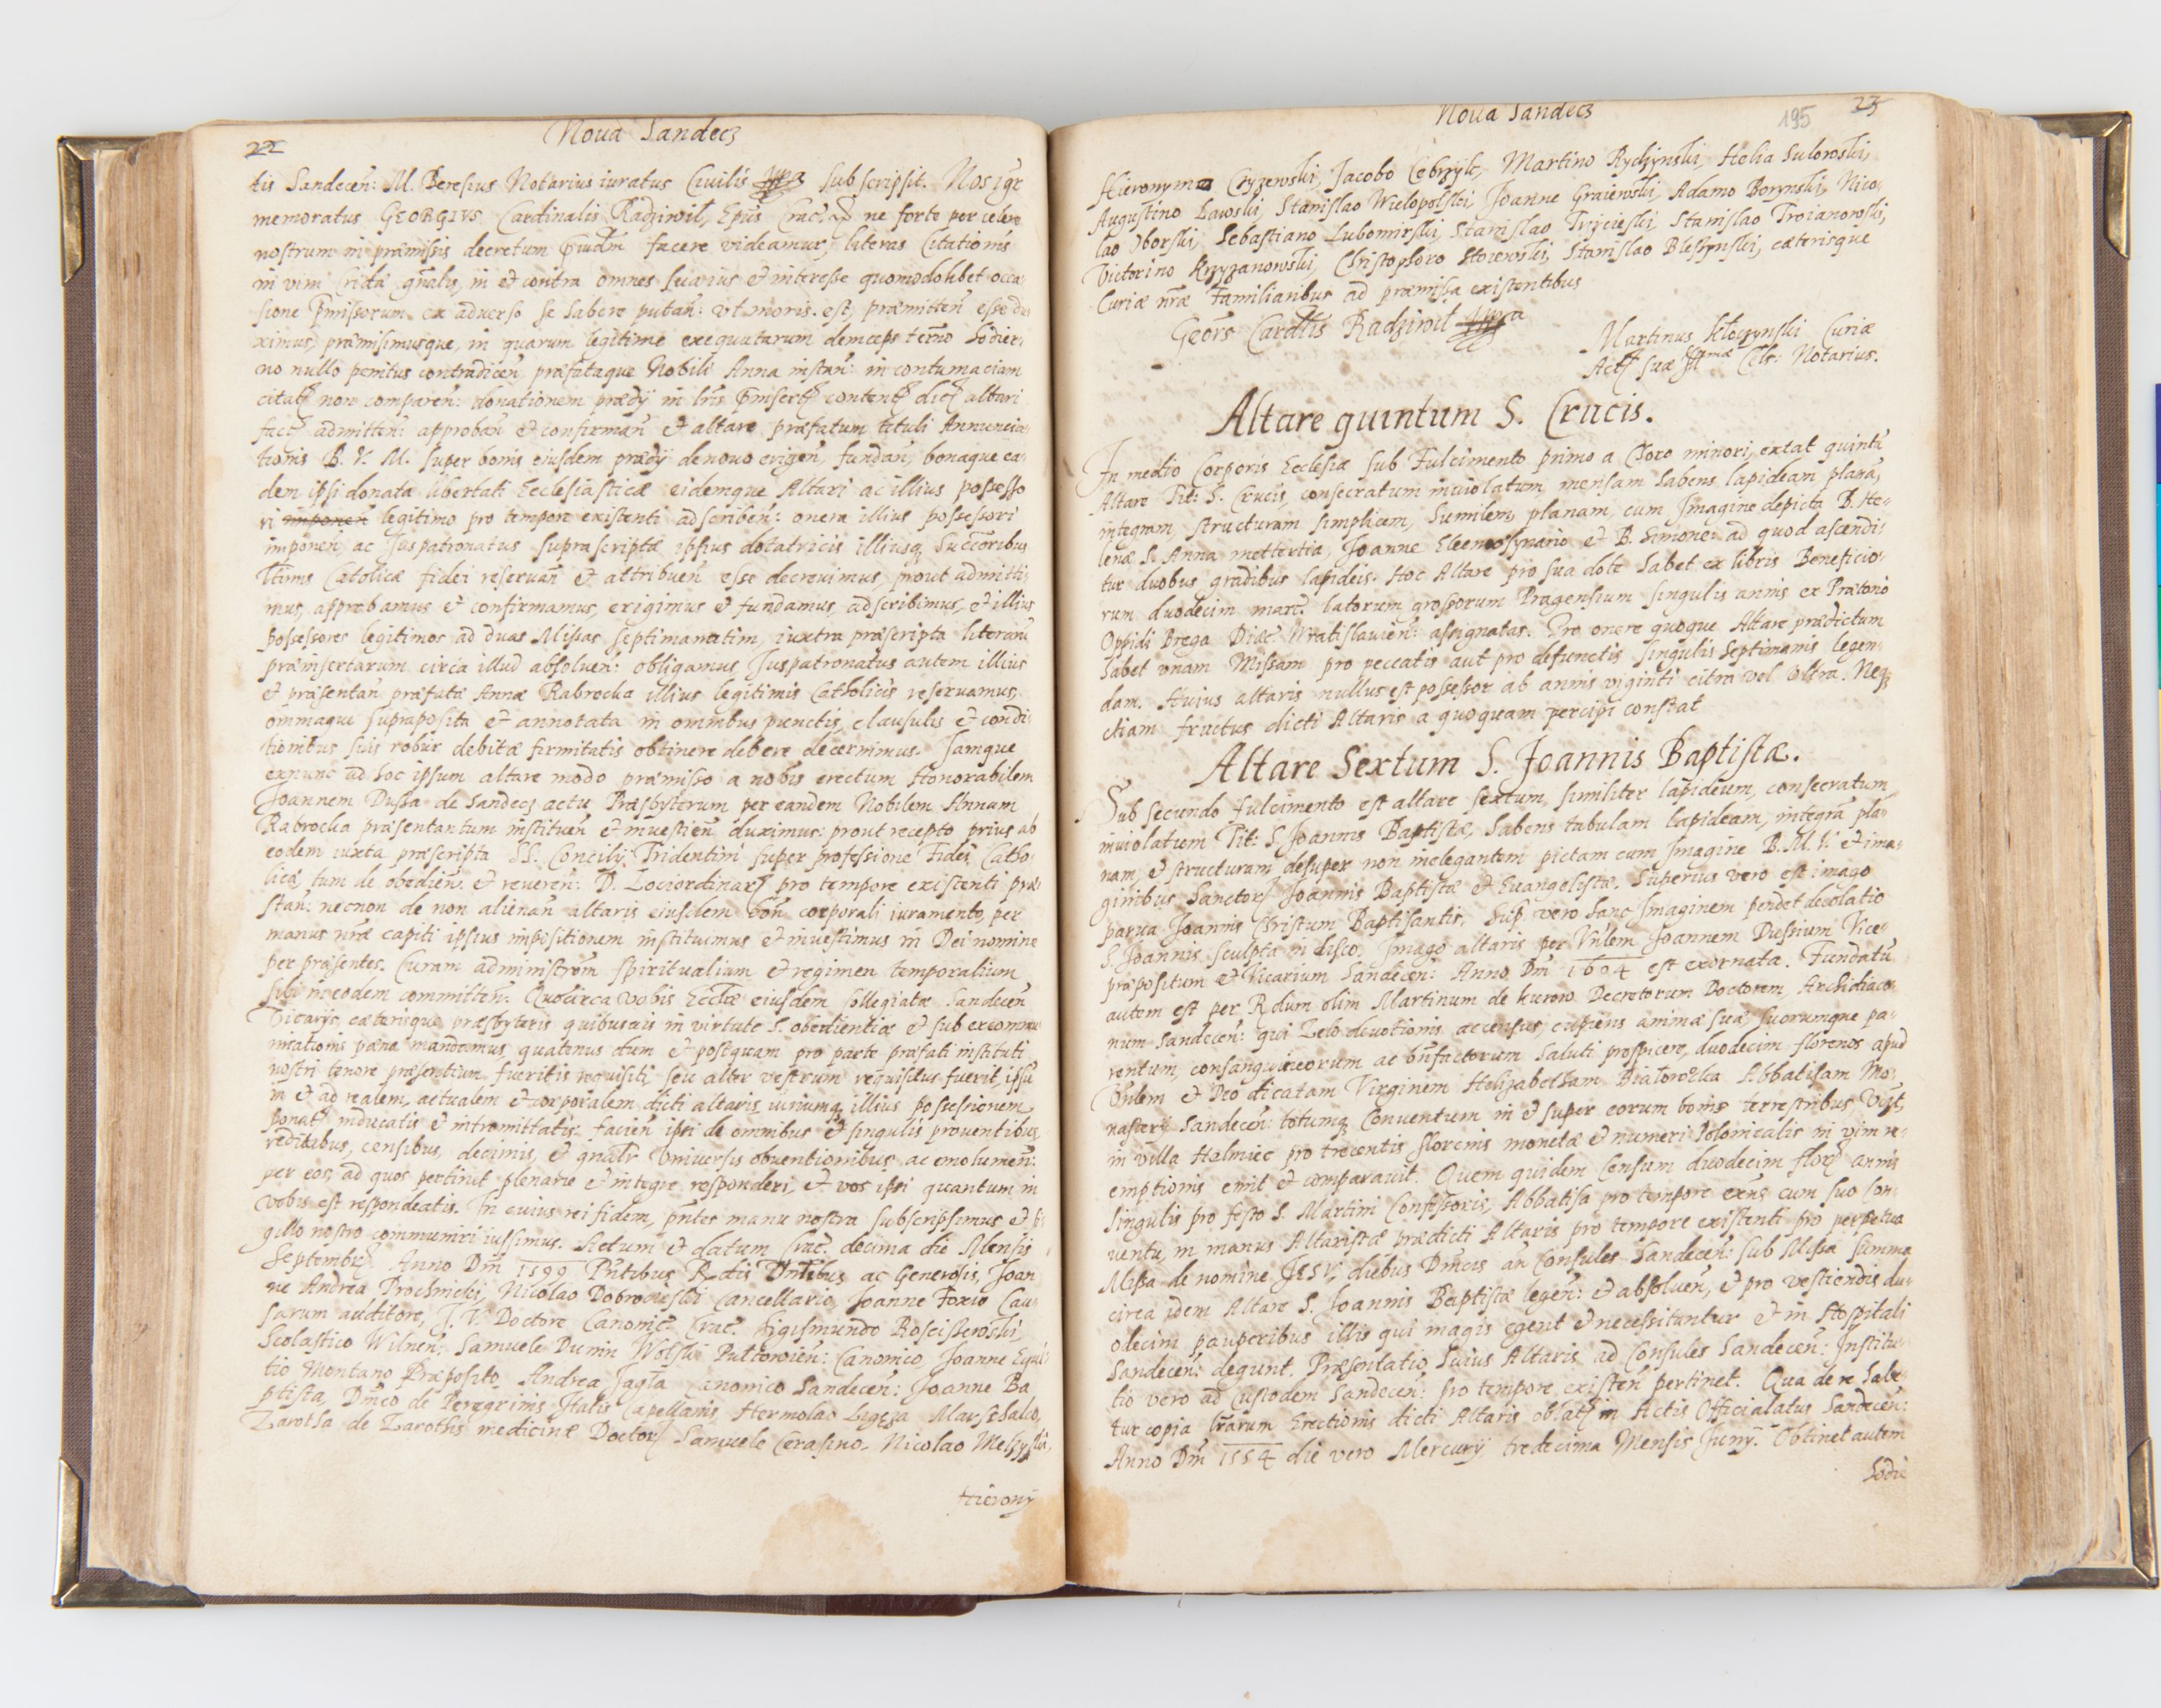 22
Noua Sandecz
tis Sandeceñ: M. Beresius Notarius iuratus Ciuilis subscripsit. Nos igr̃
memoratus GEORGIVS Cardinalis Radziwił, Epũs Crac: ne forte per celere
nostrum in præmissis decretum facere videamur, literas Citationis
in vim Cridæ gñalis, in et contra omnes sua ius et interesse quomodolibet occa-
sione p̃missorum ex aduerso se habere putañ: vt moris est, præmitteñ esse du
ximus, præmisimusque, in quarum legitime exequutarum demceps termo hodier-
no nullo penitus contradiceñ præfataque Nobili Anna instañ: in contumaciam
citat non compareñ: donationem prædij in lris p̃insert content dict altari
fact admitteñ: approbañ et confirmañ et altare præfatum tituli Annuncia-
tionis B. V. M. super bonis eiusdem prædij denouo erigeñ, fundañ, bonaque ea-
dem ipsi donata libertati Ecclesiasticæ eidemque Altari ac illius possesso
ri imponeñ legitimo pro tempore existenti adscribeñ: onera illius possessori
imponeñ, ac Iuspatronatus suprascriptæ ipsius dotatricis illiusq Succõribus
ltimis Catolicæ fidei reseruañ et attribueñ esse decreuimus, prout admitti-
mus, approbamus et confirmamus, erigimus et fundamus, adscribimus, et illius
possessores legitimos ad duas Missas septimanatim, iuxtra præscripta literarũ
præinsertarum circa illud absolueñ: obligamus Iuspatronatus autem illius
et præsentañ præfatæ Annæ Rabrocka illius legitimis Catholicis reseruamus,
omniaque supraposita et annotata in omnibus punctis, clausulis et condi-
tionibus suis robur debitæ firmitatis obtinere debere decernimus. Iamque
exnunc ad hoc ipsum altare modo præmisso a nobis erectum Honorabilem
Joannem Dussa de Sandecz actu Præsbyterum per eandem Nobilem Annam
Rabrocka præsentantum institueñ et inuestieñ duximus: prout recepto prius ab
eodem iuxta præscripta SS. Concilij Tridentini super professione Fidei Catho-
licæ, tum de obedieñ. et reuereñ: D. Lociordinar pro tempore existenti præ-
stañ: necnon de non alienañ altaris eiusdem boñ corporali iuramento, per
manus nr̃æ capiti ipsius impositionem instituimus et inuestimus in Dei nomine
per præsentes. Curam administrom spiritualium et regimen temporalium
sibi in eodem committeñ: Quocirca vobis Ecclæ eiusdem Collegiatæ Sandeceñ
Vicarijs, cæterisque præsbyteris quibusuis in virtute S. obedientiæ et sub excommu
nicationis pæna mandamus, quatenus dum et postquam pro parte præfati instituti
nostri tenore præsentium fueritis requisiti, seu alter vestrum requisitus fuerit, ipsũ
in et ad realem, actualem et corporalem dicti altaris iuriumq illius possessionem
ponat inducatis et intromittatis. facieñ ipsi de omnibus et singulis prouentibus
reditibus, censibus, decimis, et gnalr vniuersis obuentionibus ac emolumeñ:
per eos, ad quos pertinet plenarie et integre responderi, et vos ipsi quantum in
vobis est respondeatis. In cuius rei fidem, pñtes manu nostra subscripsimus et si-
gillo nostro communiri iussimus. Actum et datum Crac. decima die Mensis
Septembr Anno Dñi 1599 Pñtibus Rdis Dñibus ac Generosis, Joan
ne Andrea Prochnicki, Nicolao Dobrocieski Cancellario, Joanne Foxio Cau-
sarum auditore, J. V. Doctore Canonic Crac. Sigismundo Roscissewski,
Scolastico Wilneñ. Samuele Dunin Wolski Pultouieñ: Canonico, Joanne Equi-
tio Montano Præposito, Andrea Jagła Canonico Sandeceñ: Joanne Ba
ptista, Dñico de Peregrinis Italis Capellanis, Hermolao Ligęza Marschalco,
Zarotha de Zarothis medicinæ Doctor Samuele Cerasino, Nicolao
Hierony
Noua Sandecz
195
23
Hieronymo Czyzewski, Jacobo Martino Rychzynski, Helia Sulowski,
Augustino Ławski, Stanislao Wielopolski, Joanne Graiewski, Adamo Borynski, Nico-
lao Oborski, Sebastiano Lubomirski, Stanislao Trzycieski, Stanislao Troianowski,
Victorino Krzyzanowski, Christophoro Stoiewski, Stanislao Bleszynski, cæterisque
Curiæ nr̃æ Familiaribus ad præmissa existentibus
Georg Cardlis Radziwił
Martinus Kłoczynski Curiæ
Act suæ Illmæ Cels: Notarius.
Altare quintum S. Crucis.
In medio Corporis Ecclesiæ sub Fulcimento primo a Choro minori, extat quintũ
Altare Tit: S. Crucis, consecratum inuiolatum, mensam habens lapideam planã,
integram, structuram simplicem, humilem, planam, cum Imagine depicta B. He-
lenæ, S. Anna mettertia, Joanne Eleemosynario et B. Simone: ad quod ascendi-
tur duobus gradibus lapideis. Hoc Altare pro sua dote habet ex libris Beneficio-
rum duodecim marc. latorum grossorum Pragensium singulis annis ex Prætorio
Oppidi Brega Diæc. Wratislauieñ: assignatas. Pro onere quoque Altare prædictum
habet vnam Missam pro peccatis aut pro defunctis singulis Septimanis legen-
dam. Huius altaris nullus est possessor ab annis viginti citra vel vltra. Neq
etiam fructus dicti Altaris a quoquam percipi constat
Altare Sextum S. Joannis Baptistæ.
Sub secundo fulcimento est altare sextum, similiter lapideum, consecratum
inuiolatum Tit: S. Joannis Baptistæ, habens tabulam lapideam, integrã pla-
nam, et structuram desuper non inelegantem pictam cum Imagine B. M. V. et ima-
ginibus Sanctor Joannis Baptistæ et Euangelistæ. Superius vero est imago
parua Joannis Christum Baptisantis. Sup. vero hanc Imaginem pendet decolatio
S. Joannis sculpta in disco. Imago altaris per Vñlem Joannem Dussium Vice-
præpositum et Vicarium Sandeceñ: Anno Dñi 1604 est exornata. Fundatũ
autem est per Rdum olim Martinum de Kurow Decretorum Doctorem, Archidiaco-
num Sandeceñ: qui Zelo deuotionis accensus, cupiens animæ suæ, suorumque pa-
rentum, consanguineorum ac bñfactorum saluti prospicere, duodecim florenos apud
Vñlem et Deo dicatam Virginem Helizabetham Białowodska Abbatissam Mo-
nasterij Sandeceñ: totumq Conuentum in et super eorum bonis terrestribus, Vizt,
in villa Hełmiec pro trecentis florenis monetæ et numeri Polonicalis in vim re-
emptionis emit et comparauit. Quem quidem Censum duodecim flor annis
singulis pro festo S. Martini Confessoris, Abbatissa pro tempore exñs cum suo Con-
uentu, in manus Altaristæ prædicti Altaris pro tempore existenti pro perpetua
Missa de nomine JESV, diebus Dñicis añ Consules Sandeceñ: sub Missa summa
circa idem Altare S. Joannis Baptistæ legeñ: et absolueñ, et pro vestiendis du-
odecim pauperibus illis qui magis egent et necessitantur et in Hospitali
Sandeceñ: degunt. Præsentatio huius Altaris ad Consules Sandeceñ: Institu-
tio vero ad Custodem Sandeceñ: pro tempore existeñ pertinet. Qua de re habe-
tur copia lrarum Erectionis dicti Altaris oblat in Actis Officialatus Sandeceñ:
Anno Dñi 1554 die vero Mercurij tredecima Mensis Junij. Obtinet autem
hodie